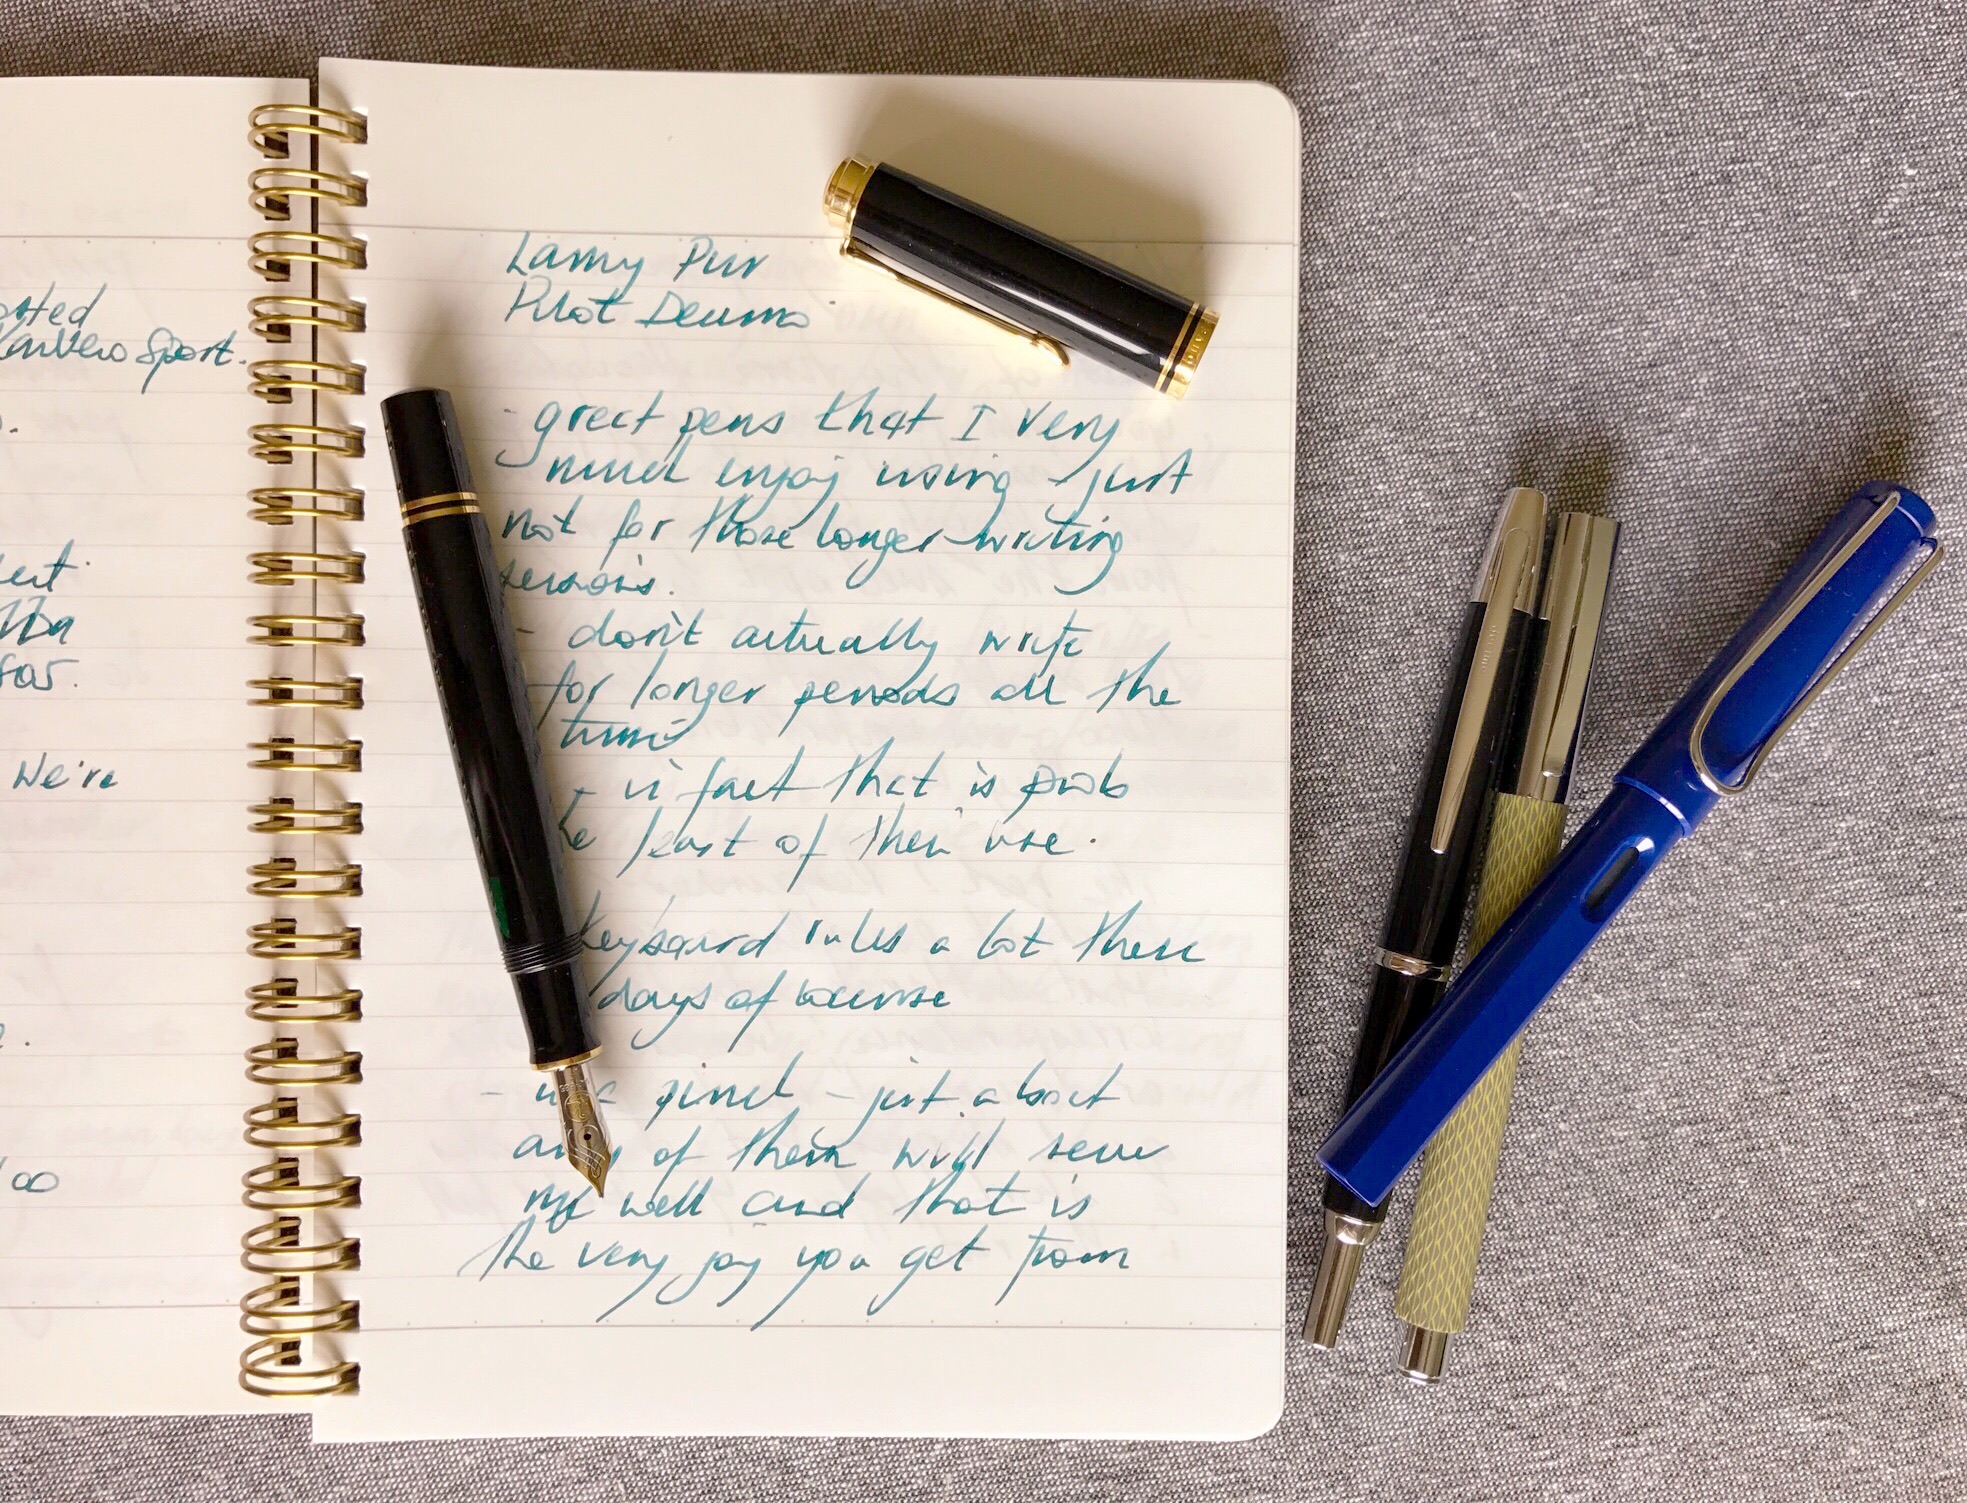 osted
Kaweco Sport.
We're
too
Lamy Pur
Pilot Decimo
- great pens that I very
much enjoy using - just
not for those longer writing
sessions.
- don't actually write
for longer periods all the
time
- in fact that is prob
the least of their use.
keyboard rules a lot these
days of course
- in a pinch - just about
any of them will serve
me well and that is
the very joy you get from